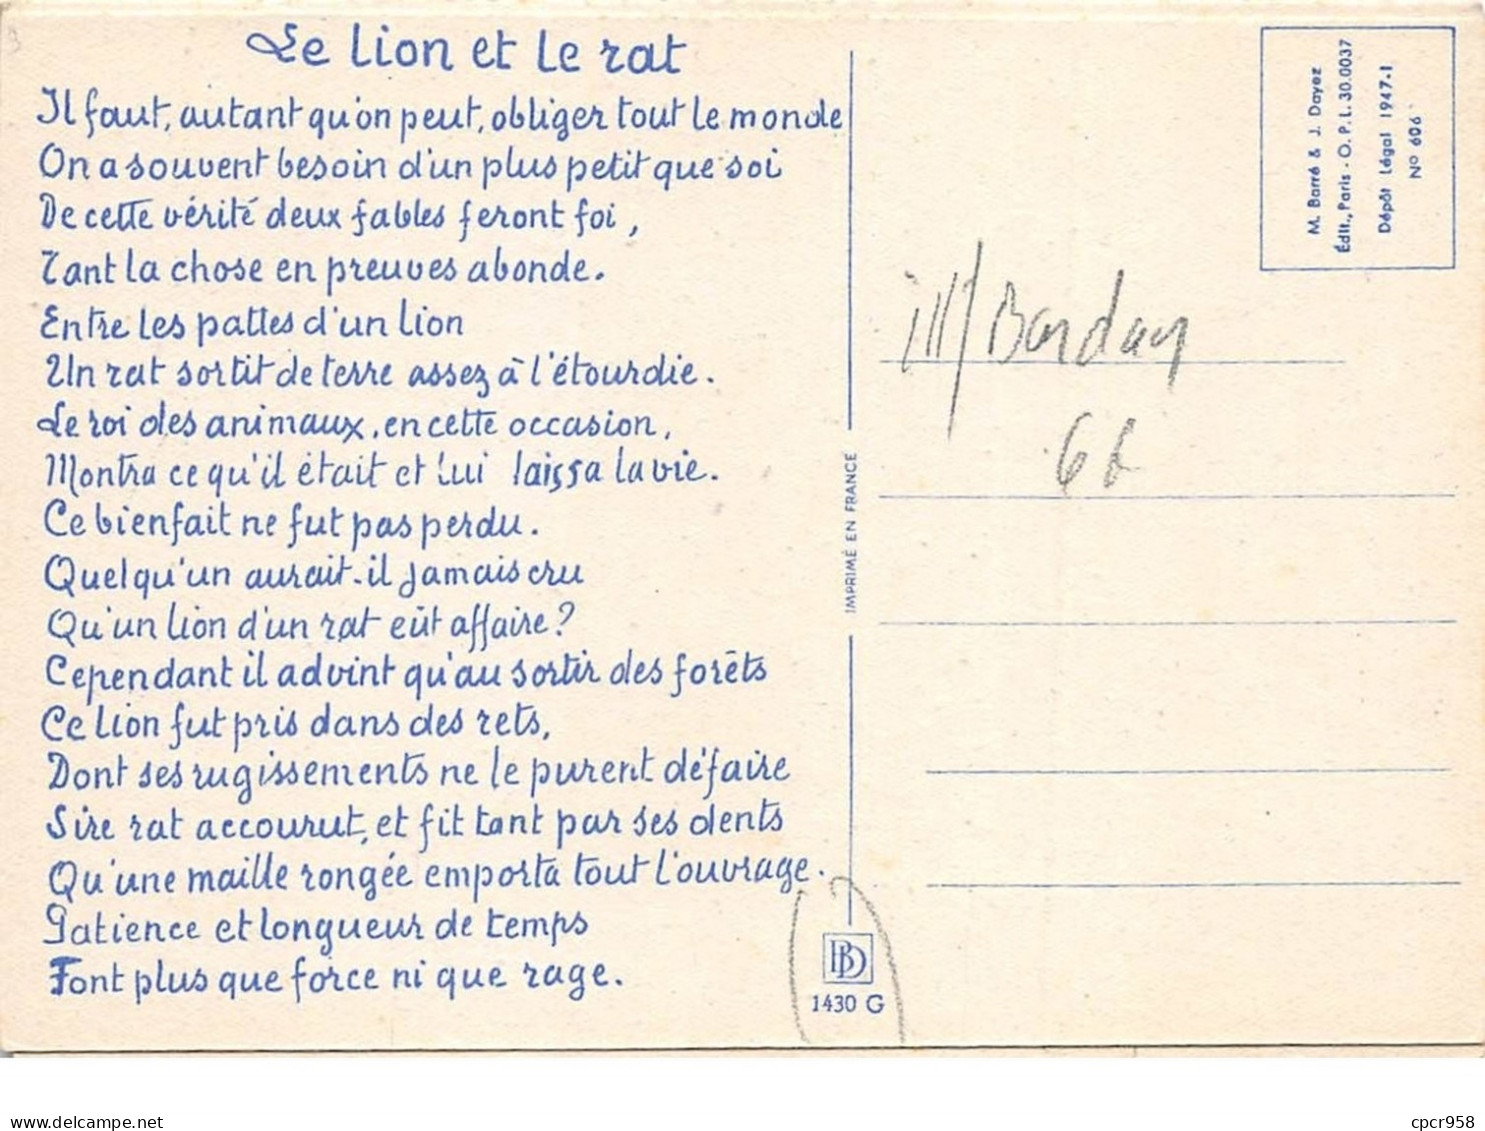 Le lion et le rat
Il faut, autant qu'on peut, obliger tout le monde
On a souvent besoin d'un plus petit que soi
De cette vérité deux fables feront foi,
Tant la chose en preuves abonde.
Entre les pattes d'un lion
Un rat sortit de terre assez à l'étourdie.
Le roi des animaux, en cette occasion,
Montra ce qu'il était et lui laissa la vie.
Ce bienfait ne fut pas perdu.
Quelqu'un aurait-il jamais cru
Qu'un lion d'un rat eût affaire?
Cependant il advint qu'au sortir des forêts
Ce lion fut pris dans des rets,
Dont ses rugissements ne le purent défaire
Sire rat accourut, et fit tant par ses dents
Qu'une maille rongée emporta tout l'ouvrage.
Patience et longueur de temps
Font plus que force ni que rage.
IMPRIMÉ EN FRANCE
BD
1430 G
M. Barré & J. Dayez
Édit., Paris - O.P.L. 30.0037
Dépôt Légal 1947-I
No 606
ill/
66
delcampe.net
cpcr958